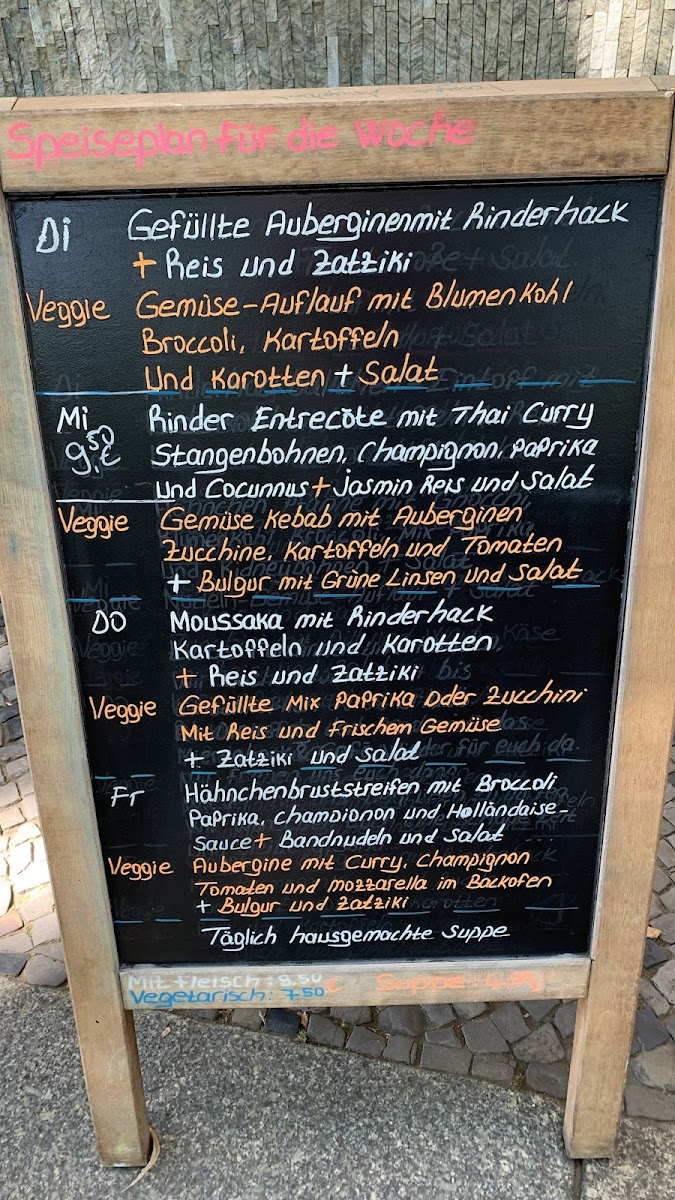 Speiseplan für die Woche
Di Gefüllte Auberginen mit Rinderhack
+ Reis und Zatziki
Veggie Gemüse-Auflauf mit Blumenkohl
Broccoli, Kartoffeln
Und Karotten + Salat
Mi Rinder Entrecôte mit Thai Curry
9,50 € Stangenbohnen, Champignon, Paprika
und Cocunnus + Jasmin Reis und Salat
Veggie Gemüse Kebab mit Auberginen
Zucchine, Kartoffeln und Tomaten
+ Bulgur mit Grüne Linsen und Salat
DO Moussaka mit Rinderhack
Kartoffeln und Karotten
+ Reis und Zatziki
Veggie Gefüllte Mix Paprika Oder Zucchini
Mit Reis und Frischem Gemüse
+ Zatziki und Salat
Fr Hähnchenbruststreifen mit Broccoli
Paprika, Champignon und Holländaise-
Sauce + Bandnudeln und Salat
Veggie Aubergine mit Curry, Champignon
Tomaten und Mozzarella im Backofen
+ Bulgur und Zatziki
Täglich hausgemachte Suppe
Mit Fleisch: 8,50 € Suppe:
Vegetarisch: 7,50